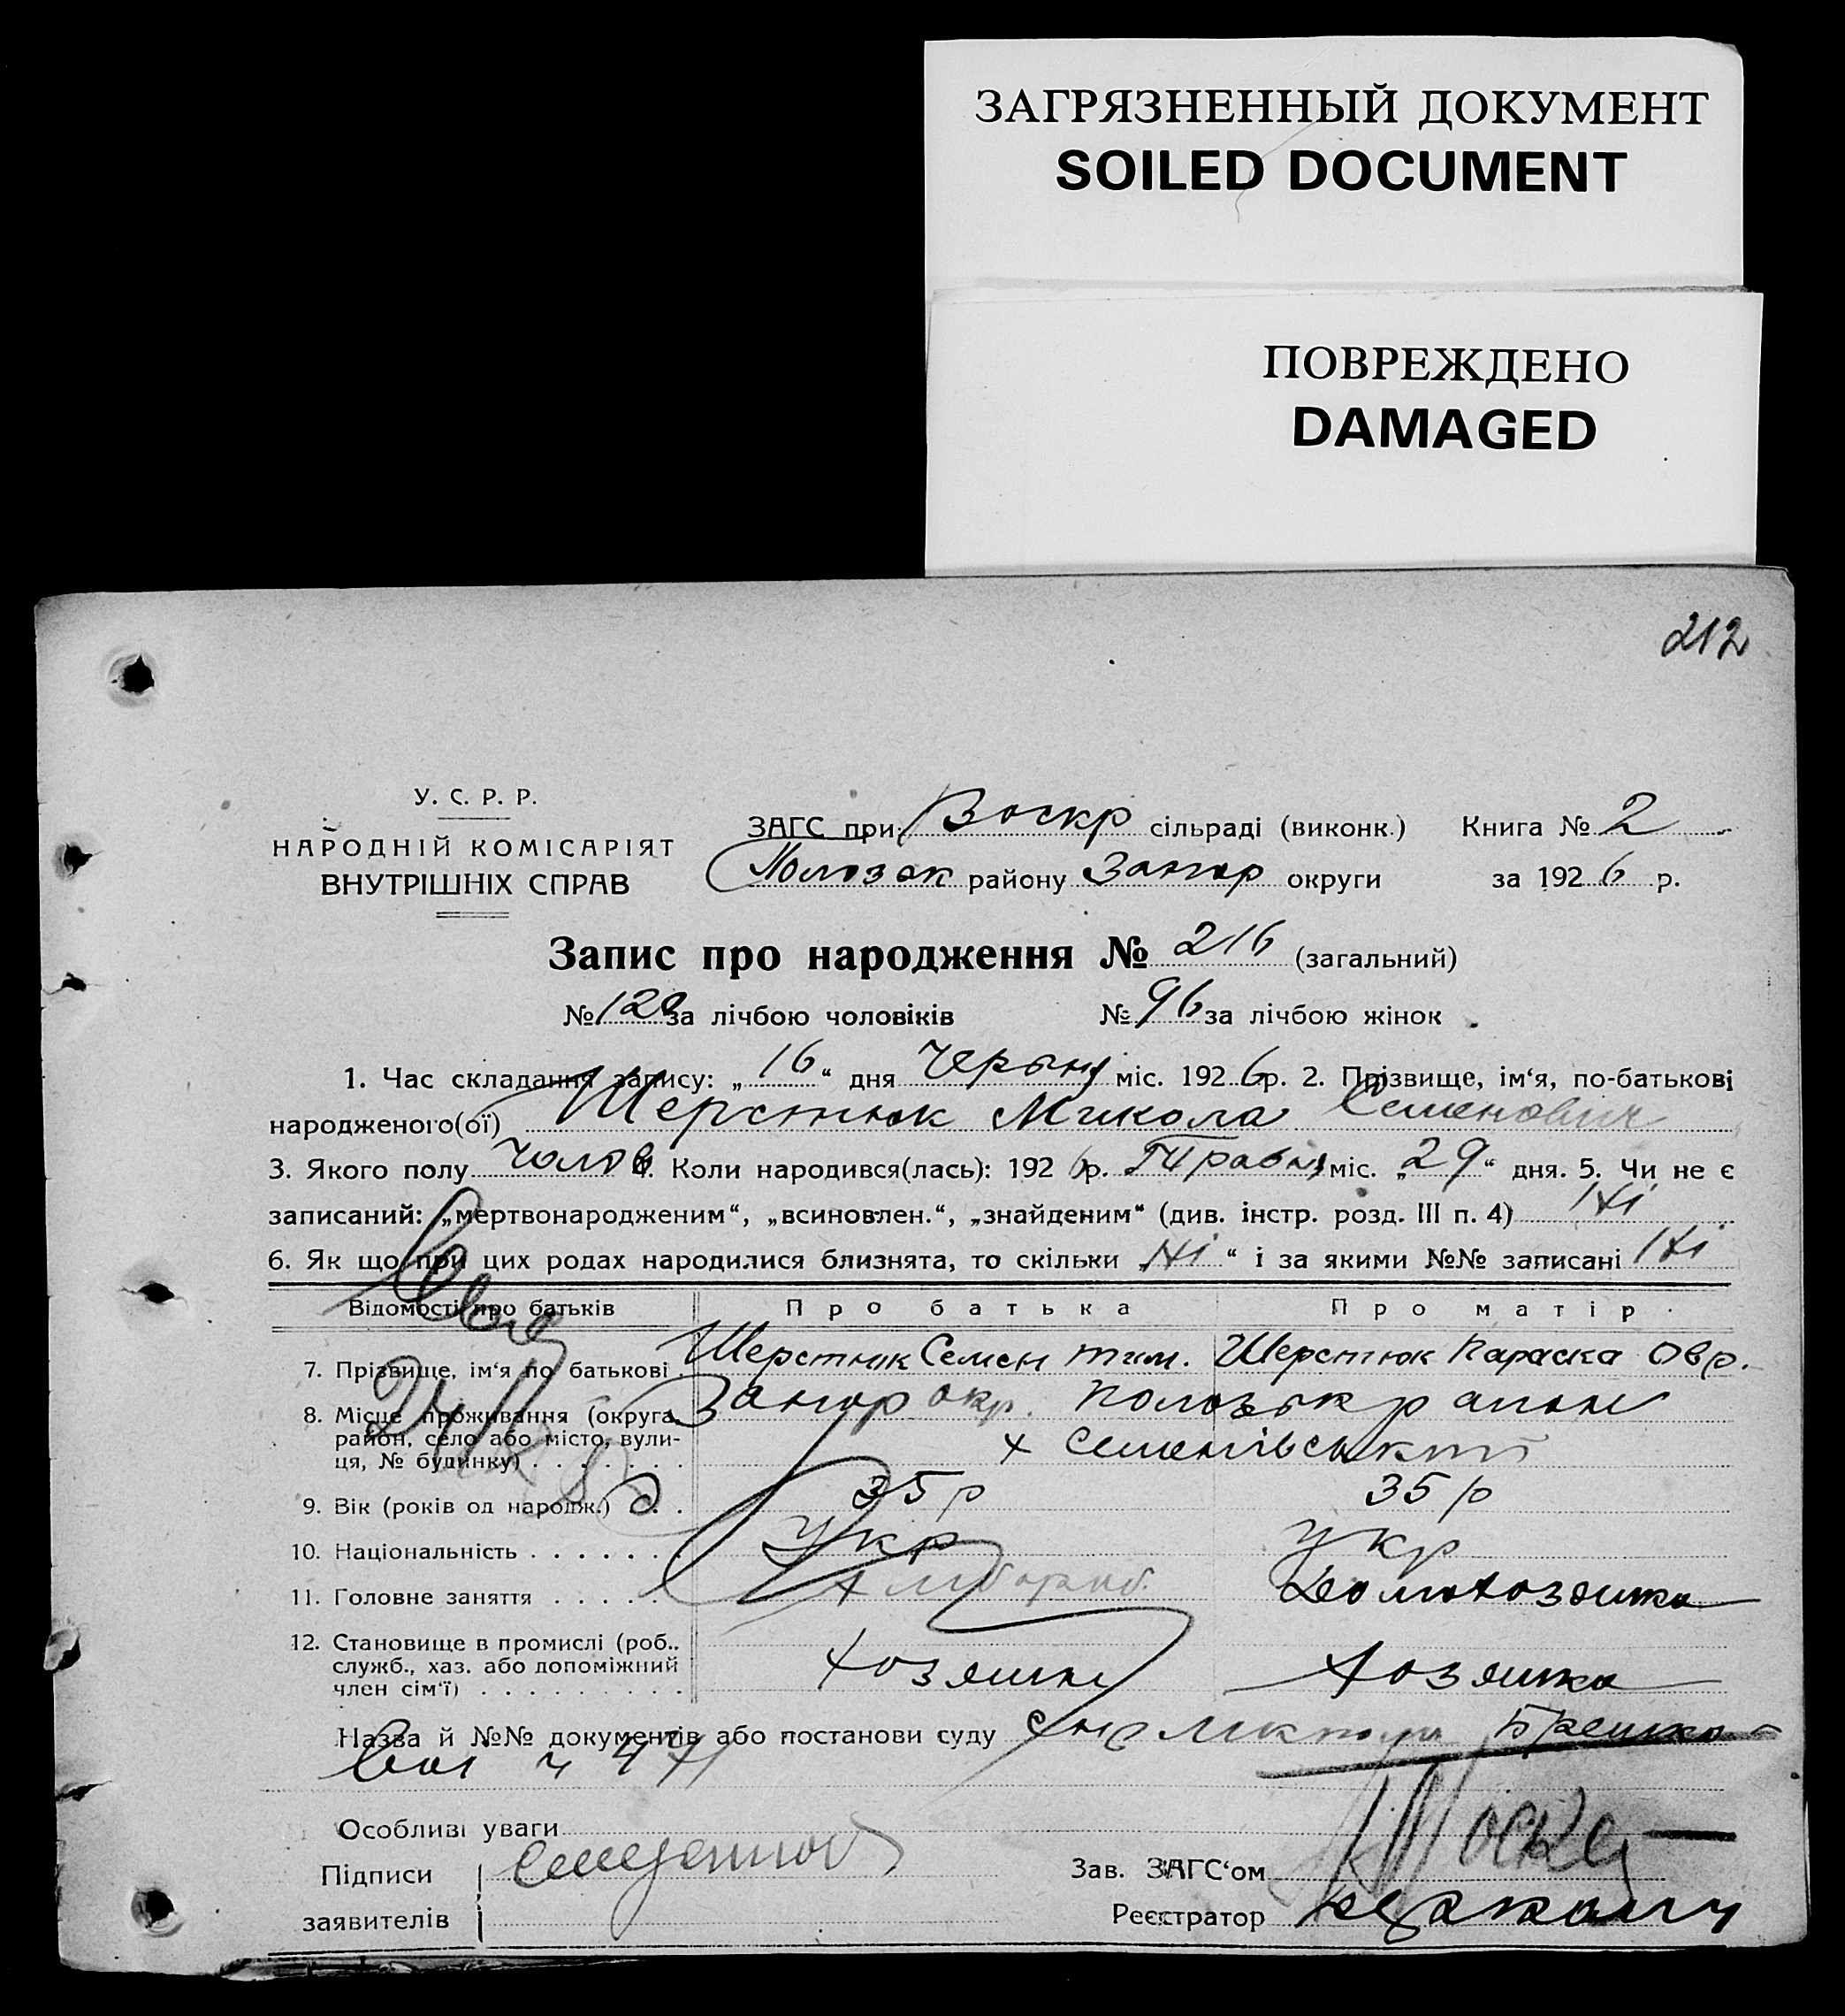 ЗАГРЯЗНЕННЫЙ ДОКУМЕНТ
SOILED DOCUMENT
ПОВРЕЖДЕНО
DAMAGED
212
У. С. Р. Р.
НАРОДНІЙ КОМІСАРІЯТ
ВНУТРІШНІХ СПРАВ
ЗАГС при Воскр сільраді (виконк.) Книга № 2
Полозок району Запор округи за 1926 р.
Запис про народження № 216 (загальний)
№ 120 за лічбою чоловіків № 96 за лічбою жінок
1. Час складання запису: „16“ дня Червня міс. 1926 р. 2. Прізвище, ім‘я, по-батькові
народженого(ої) Шерстюк Микола Семенович
3. Якого полу чолов 4. Коли народився(лась): 1926 р. Травня міс. „29“ дня. 5. Чи не є
записаний: „мертвонародженим“, „всиновлен.“, „знайденим“ (див. інстр. розд. III п. 4) Ні
6. Як що при цих родах народилися близнята, то скільки „Ні“ і за якими №№ записані Ні
Відомості про батьків Про батька Про матір
7. Прізвище, ім‘я по батькові Шерстюк Семен Тим. Шерстюк Параска Овр.
8. Місце проживання (округа, Запор окр. Полозьк район
район, село або місто, вули-
ця, № будинку) х Семенівський
9. Вік (років од народж.) 35 р 35 р
10. Національність Укр Укр
11. Головне заняття Хлібороб. Домохозяйка
12. Становище в промислі (роб.,
служб., хаз. або допоміжний
член сім‘ї) Хозяин Хозяйка
Назва й №№ документів або постанови суду
Особливі уваги
Підписи
заявителів
Зав. ЗАГС‘ом
Реєстратор